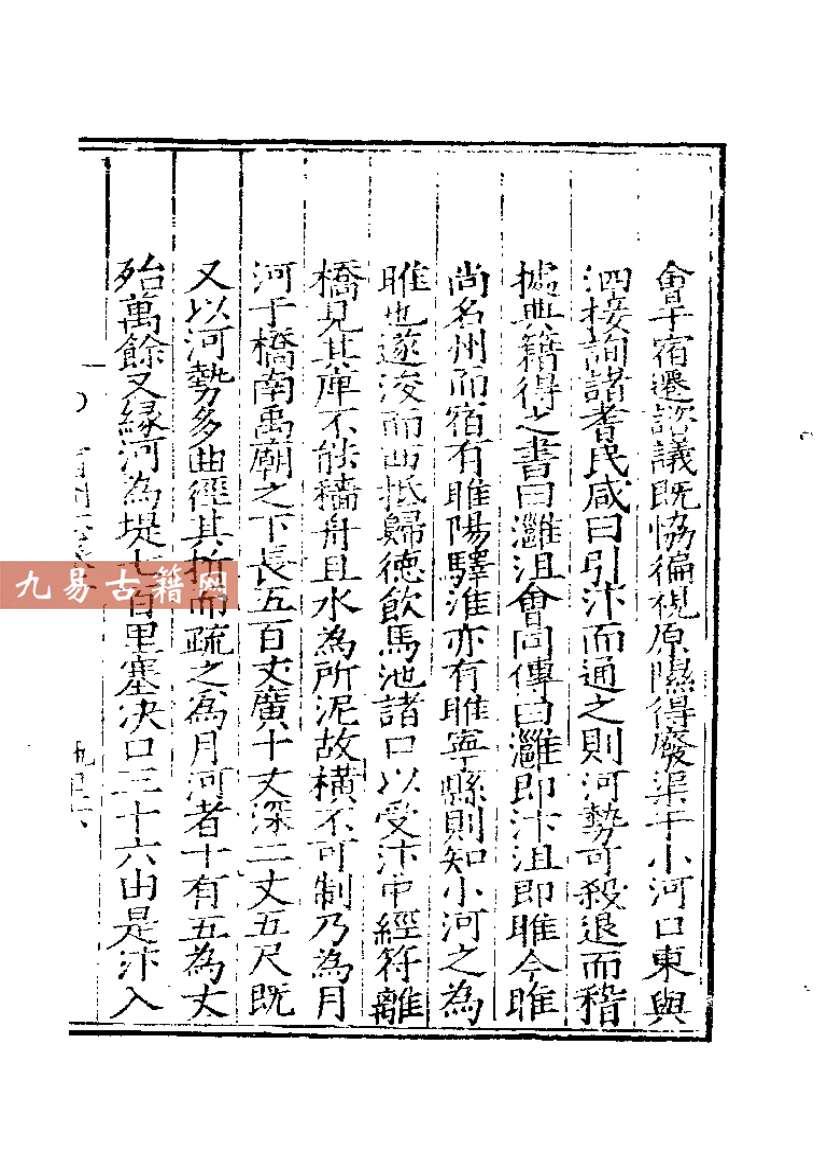 會于宿遷諮議既恊徧視原隰得廢渠于小河口東與
泗接詢諸耆民咸曰引汴而通之則河勢可殺退而稽
據典籍得之書曰灉沮會同傳曰灉即汴沮即睢今睢
尚名州而宿有睢陽驛淮亦有睢寧縣則知小河之為
睢也遂浚而西抵歸德飲馬池諸口以受汴中經符離
橋見其庳不能穡舟且水為所泥故橫不可制乃為月
河于橋南禹廟之下長五百丈廣十丈深二丈五尺既
又以河勢多曲徑其折而疏之為月河者十有五為丈
殆萬餘又緣河為堤七百里塞决口三十六由是汴入
九易古籍网